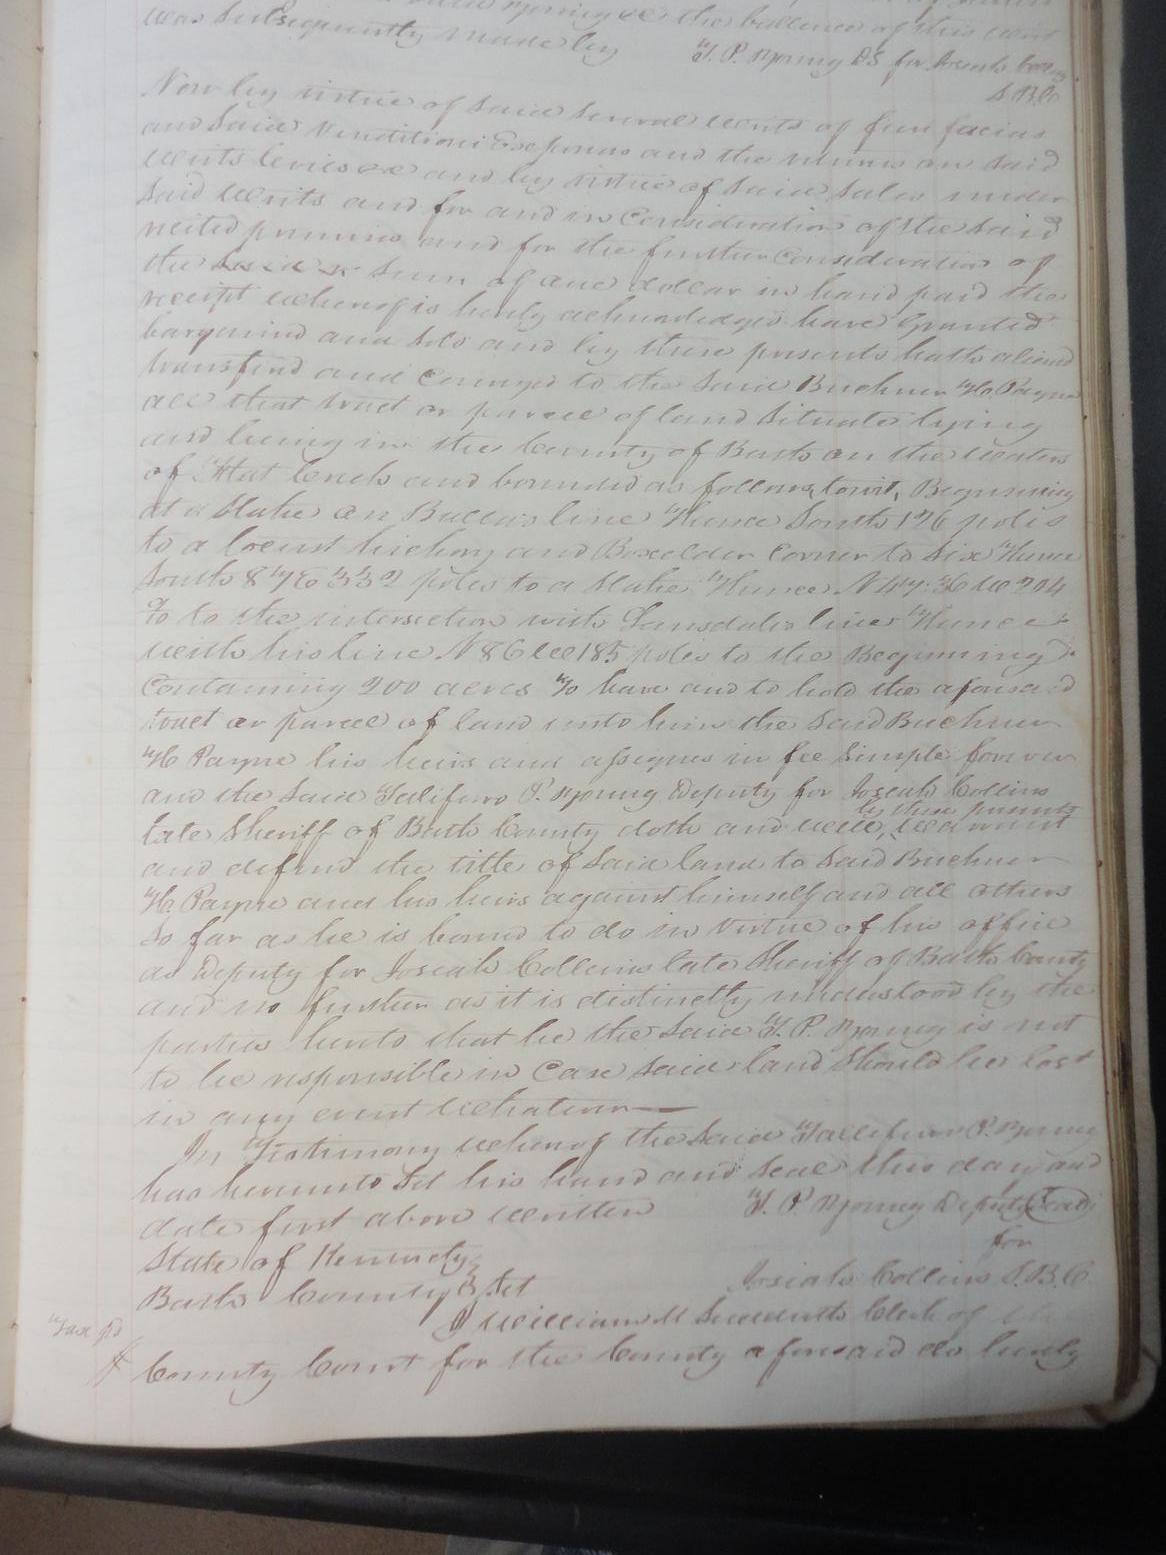 the ballance of this writ
was subsequently made by T. P. Young DS for Josiah
S B C
Now by virtue of said several writs of fieri facias
and said Venditioni Exponas and the returns on said
writs levies &c and by virtue of said sales under
said writs and for and in Consideration of the said
recited premises and for the further Consideration of
the sum of one dollar in hand paid the
receipt whereof is hereby acknowledged have Granted
bargained and sold and by these presents hath aliend
transferd and conveyed to the said Buckner H. Payne
all that tract or parcel of land situate lying
and being in the County of Bath on the waters
of Flat Creek and bounded as follows, towit, Beginning
at a Stake on line Thence South 126 poles
to a Locust hickory and Boxelder Corner to Six Thence
South 87 E 332 poles to a Stake Thence N 47 W 204
to the intersection with Lansdales line Thence
with his line N 86 W 185 poles to the Beginning
Containing 200 acres To have and to hold the aforesaid
tract or parcel of land unto him the said Buckner
H Payne his heirs and assignes in fee Simple forever
and the said Taliferro P. Young Deputy for Josiah Collins
by these presents
late Sheriff of Bath County doth and will, warrant
and defend the title of said land to said Buckner
H. Payne and his heirs against himself and all others
so far as he is bound to do in virtue of his office
as Deputy for Josiah Collins late Sheriff of Bath County
and no further as it is distinctly understood by the
parties hereto that he the said T. P. Young is not
to be responsible in Case said land should be lost
in any event whatever
In Testimony whereof the said Talliferro P. Young
has hereunto set his hand and seal this day and
date first above written T. P. Young Deputy Seal
for
State of Kentucky
Josiah Collins S.B.C.
Bath County Sct
I William M Sudduth Clerk of
Tax pd
County Court for the County aforesaid do hereby